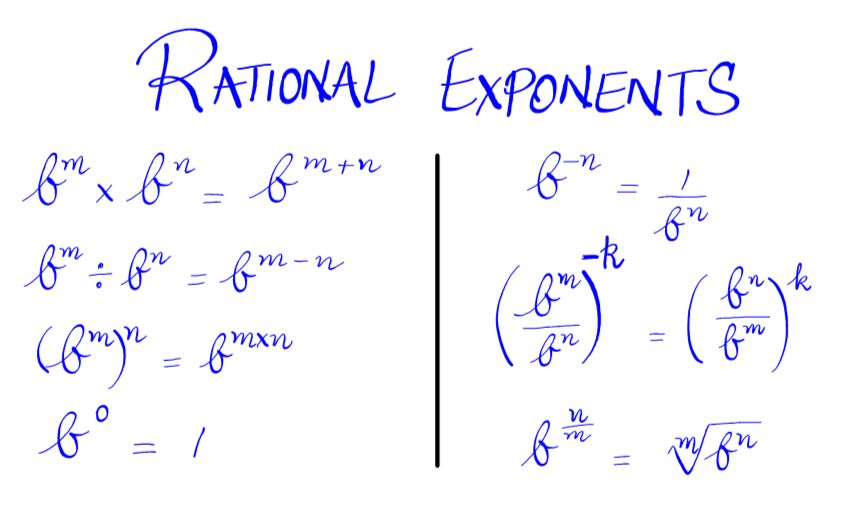 RATIONAL EXPONENTS
b^m × b^n = b^{m+n}
b^m ÷ b^n = b^{m-n}
(b^m)^n = b^{m×n}
b^0 = 1
b^{-n} = \frac{1}{b^n}
\left(\frac{b^m}{b^n}\right)^{-k} = \left(\frac{b^n}{b^m}\right)^k
b^{\frac{n}{m}} = \sqrt[m]{b^n}